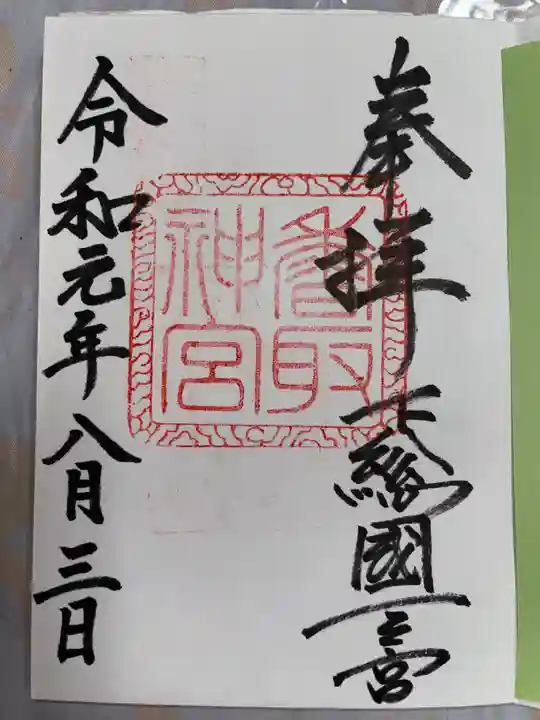 奉拝
下総國一之宮
香取
神宮
令和元年八月三日